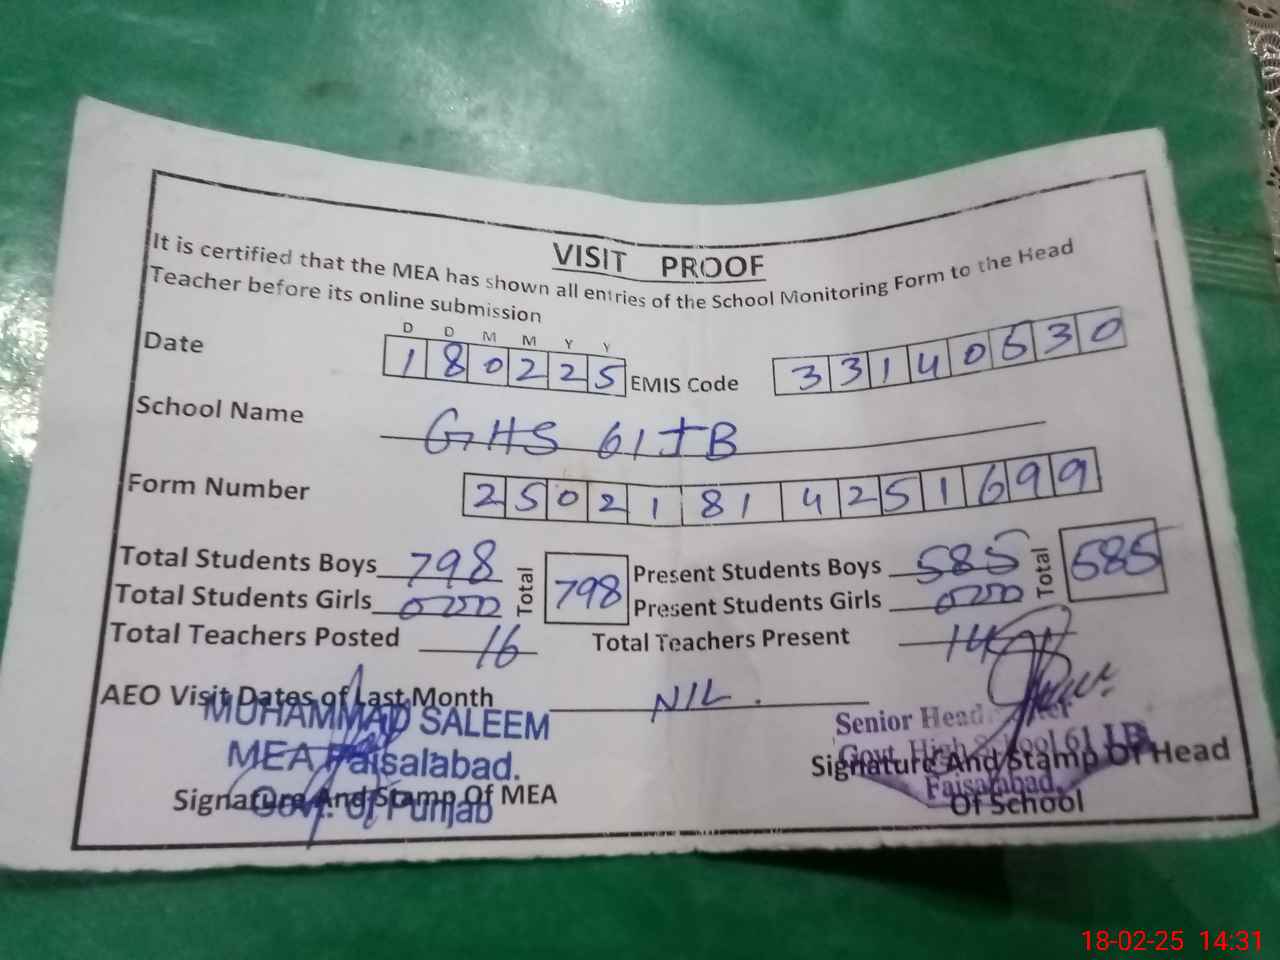 VISIT PROOF
It is certified that the MEA has shown all entries of the School Monitoring Form to the Head
Teacher before its online submission
D D M M Y Y
Date 1 8 0 2 2 5 EMIS Code 3 3 1 4 0 6 3 0
School Name GHS 61 JB
Form Number 2 5 0 2 1 8 1 4 2 5 1 6 9 9
Total Students Boys 798 Total 798 Present Students Boys 585 Total 585
Total Students Girls 000 Present Students Girls 000
Total Teachers Posted 16 Total Teachers Present 14
AEO Visit Dates of Last Month NIL.
MUHAMMAD SALEEM
MEA Faisalabad.
Govt. of Punjab
Signature And Stamp Of MEA
Senior Head
Govt. High School 61 J.B
Faisalabad.
Signature And Stamp Of Head
Of School
18-02-25 14:31